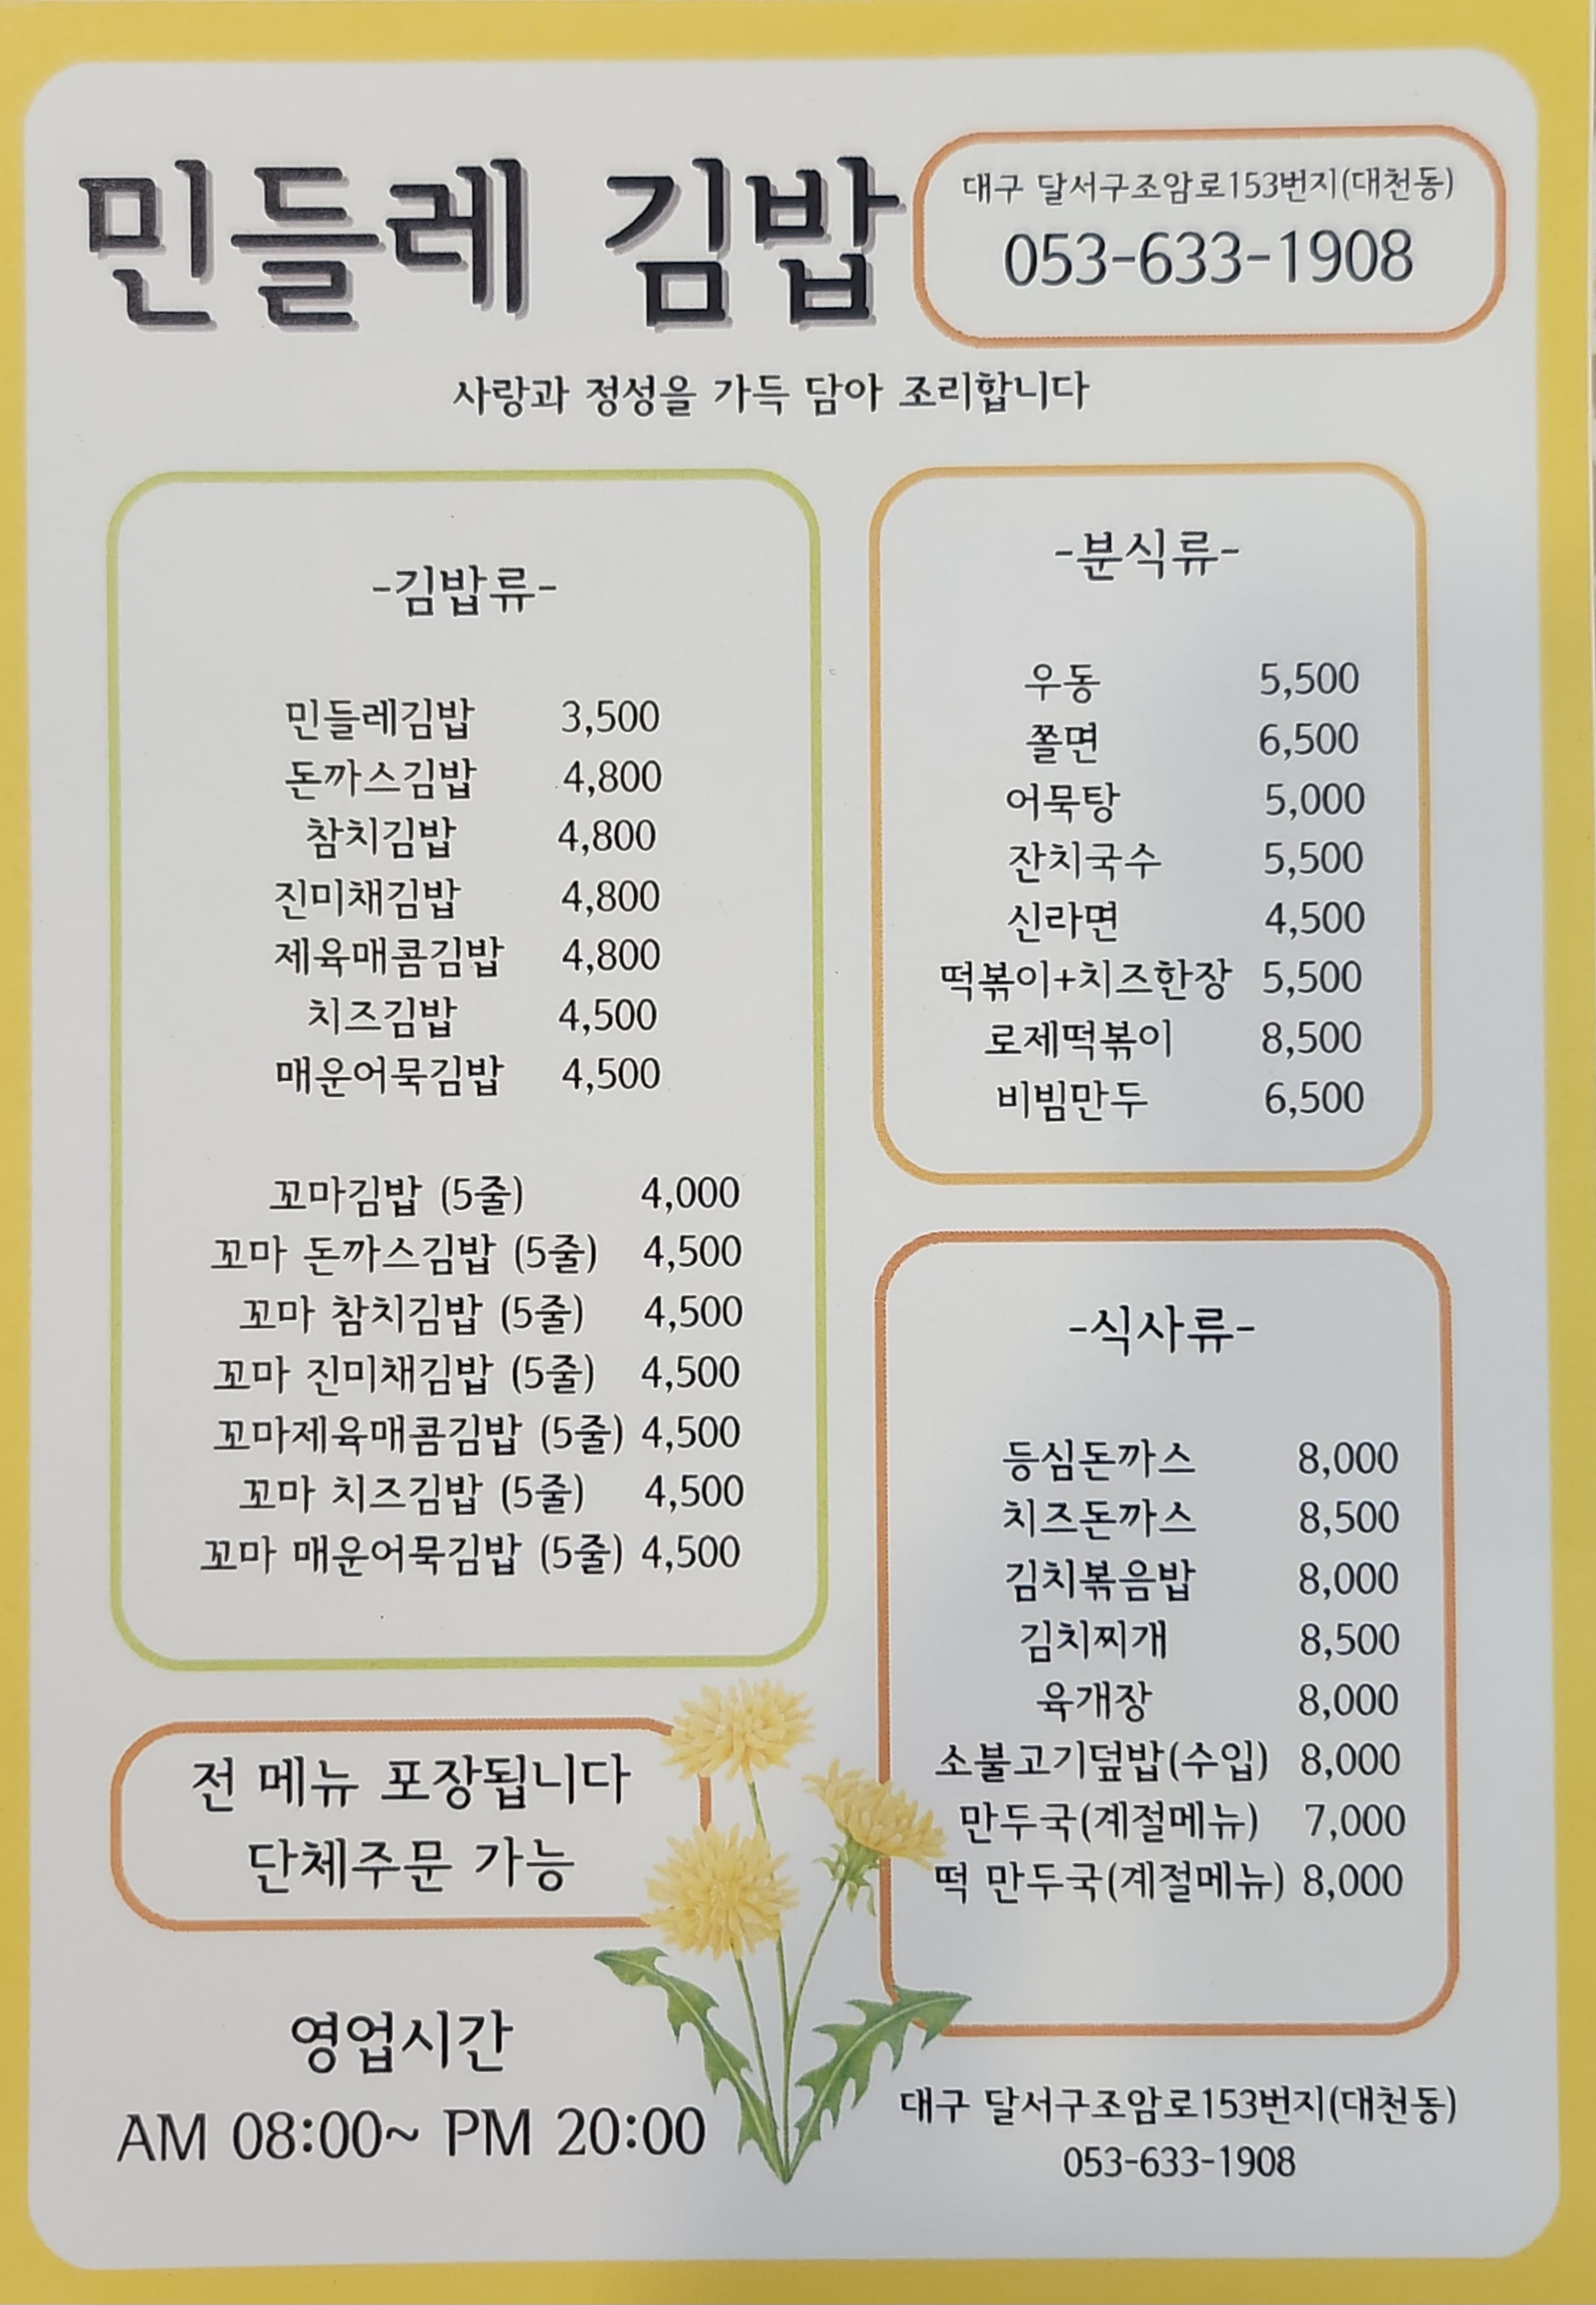 민들레 김밥
대구 달서구조암로153번지(대천동)
053-633-1908
사랑과 정성을 가득 담아 조리합니다
-김밥류-
민들레김밥 3,500
돈까스김밥 4,800
참치김밥 4,800
진미채김밥 4,800
제육매콤김밥 4,800
치즈김밥 4,500
매운어묵김밥 4,500
꼬마김밥 (5줄) 4,000
꼬마 돈까스김밥 (5줄) 4,500
꼬마 참치김밥 (5줄) 4,500
꼬마 진미채김밥 (5줄) 4,500
꼬마제육매콤김밥 (5줄) 4,500
꼬마 치즈김밥 (5줄) 4,500
꼬마 매운어묵김밥 (5줄) 4,500
-분식류-
우동 5,500
쫄면 6,500
어묵탕 5,000
잔치국수 5,500
신라면 4,500
떡볶이+치즈한장 5,500
로제떡볶이 8,500
비빔만두 6,500
-식사류-
등심돈까스 8,000
치즈돈까스 8,500
김치볶음밥 8,000
김치찌개 8,500
육개장 8,000
소불고기덮밥(수입) 8,000
만두국(계절메뉴) 7,000
떡 만두국(계절메뉴) 8,000
전 메뉴 포장됩니다
단체주문 가능
영업시간
AM 08:00~ PM 20:00
대구 달서구조암로153번지(대천동)
053-633-1908